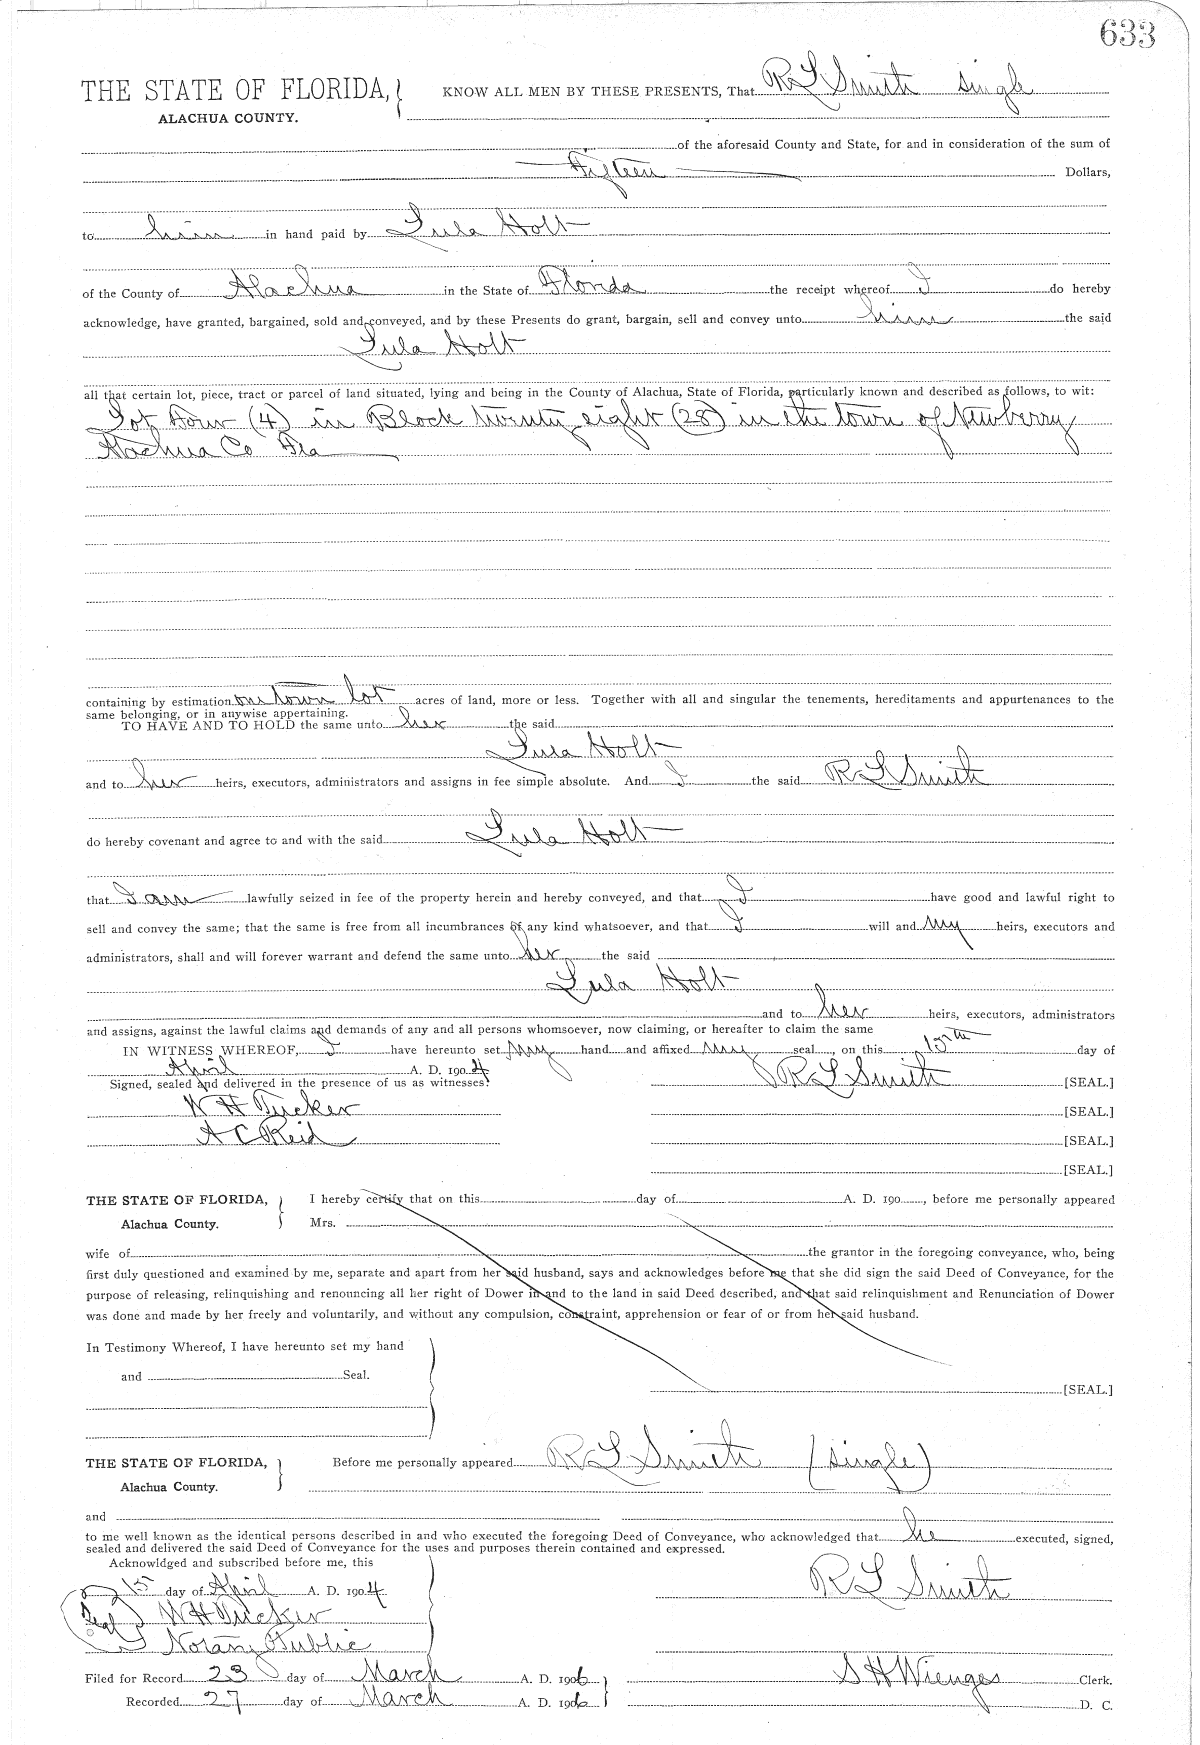 633
THE STATE OF FLORIDA, KNOW ALL MEN BY THESE PRESENTS, That R L Smith single
ALACHUA COUNTY.
of the aforesaid County and State, for and in consideration of the sum of
Fifteen Dollars,
to him in hand paid by Lula Holt
of the County of Alachua in the State of Florida the receipt whereof I do hereby
acknowledge, have granted, bargained, sold and conveyed, and by these Presents do grant, bargain, sell and convey unto him the said
Lula Holt
all that certain lot, piece, tract or parcel of land situated, lying and being in the County of Alachua, State of Florida, particularly known and described as follows, to wit:
Lot Four (4) in Block twenty eight (28) in the town of Newberry
Alachua Co Fla
containing by estimation one town lot acres of land, more or less. Together with all and singular the tenements, hereditaments and appurtenances to the
same belonging, or in anywise appertaining.
TO HAVE AND TO HOLD the same unto her the said
Lula Holt
and to her heirs, executors, administrators and assigns in fee simple absolute. And I the said R L Smith
do hereby covenant and agree to and with the said Lula Holt
that I am lawfully seized in fee of the property herein and hereby conveyed, and that I have good and lawful right to
sell and convey the same; that the same is free from all incumbrances of any kind whatsoever, and that I will and my heirs, executors and
administrators, shall and will forever warrant and defend the same unto her the said
Lula Holt
and to her heirs, executors, administrators
and assigns, against the lawful claims and demands of any and all persons whomsoever, now claiming, or hereafter to claim the same
IN WITNESS WHEREOF, I have hereunto set my hand and affixed my seal, on this 15th day of
April A. D. 1904
Signed, sealed and delivered in the presence of us as witnesses: R L Smith [SEAL.]
W H Tucker [SEAL.]
A C Reid [SEAL.]
[SEAL.]
THE STATE OF FLORIDA, I hereby certify that on this day of A. D. 190 , before me personally appeared
Alachua County. Mrs.
wife of the grantor in the foregoing conveyance, who, being
first duly questioned and examined by me, separate and apart from her said husband, says and acknowledges before me that she did sign the said Deed of Conveyance, for the
purpose of releasing, relinquishing and renouncing all her right of Dower in and to the land in said Deed described, and that said relinquishment and Renunciation of Dower
was done and made by her freely and voluntarily, and without any compulsion, constraint, apprehension or fear of or from her said husband.
In Testimony Whereof, I have hereunto set my hand
and Seal.
[SEAL.]
THE STATE OF FLORIDA, Before me personally appeared R L Smith (single)
Alachua County.
and
to me well known as the identical persons described in and who executed the foregoing Deed of Conveyance, who acknowledged that he executed, signed,
sealed and delivered the said Deed of Conveyance for the uses and purposes therein contained and expressed.
Acknowldged and subscribed before me, this
15 day of April A. D. 1904 R L Smith
Seal W H Tucker
Notary Public
Filed for Record 23 day of March A. D. 1906 S H Wienges Clerk.
Recorded 27 day of March A. D. 1906 D. C.